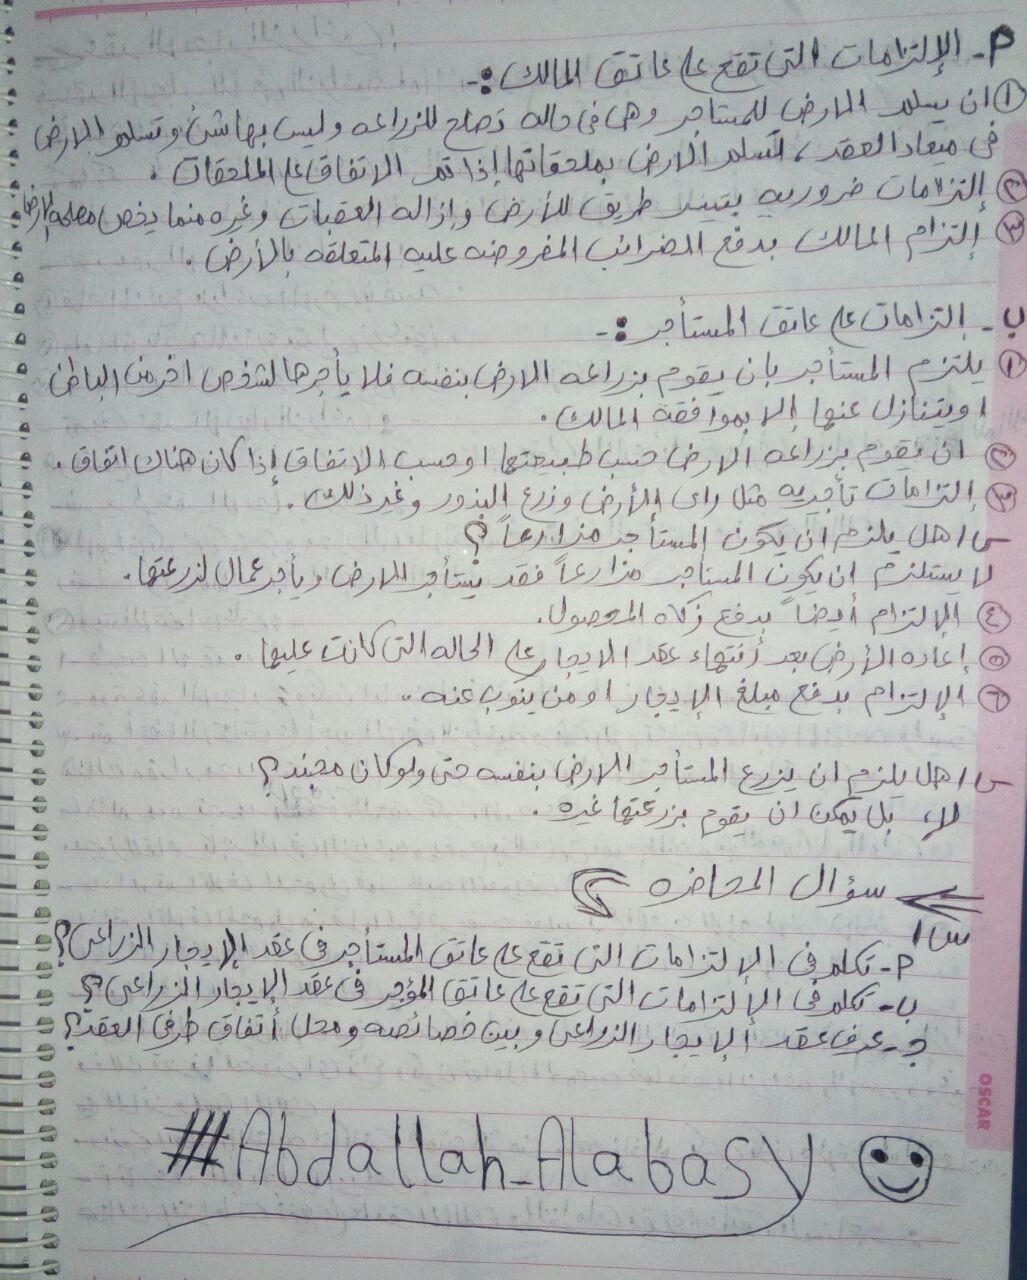 أ- الإلتزامات التى تقع على عاتق المالك :-
① ان يسلم الارض للمستأجر وهى فى حاله تصلح للزراعه وليس بها شئ وتسلم الارض
فى ميعاد العقد ، تسلم الارض بملحقاتها إذا تم الاتفاق على الملحقات .
② إلتزامات ضروريه طريق للأرض وإزاله العقبات وغيره منما يخص مصلحه الارض
③ إلتزام المالك بدفع الضرائب المفروضه عليه المتعلقه بالأرض .
ب- إلتزامات على عاتق المستأجر :-
① يلتزم المستأجر بان يقوم بزراعه الارض بنفسه فلا يأجرها لشخص اخر من الباطن
او يتنازل عنها إلا بموافقة المالك .
② ان يقوم بزراعه الارض حسب طبيعتها او حسب الاتفاق إذا كان هناك اتفاق .
③ إلتزامات تأجريه مثل راى الأرض وزرع البذور وغير ذلك .
س/ هل يلزم ان يكون المستأجر مزارعاً ؟
لا يستلزم ان يكون المستاجر مزارعاً فقد يستأجر الارض ويأجر عمال لزرعتها .
④ الإلتزام أيضاً بدفع زكاه المحصول .
⑤ إعاده الأرض بعد أنتهاء عقد الايجار على الحاله التى كانت عليها .
⑥ الإلتزام بدفع مبلغ الإيجار او من ينوب عنه .
س/ هل يلزم ان يزرع المستأجر الارض بنفسه حتى ولو كان مجند ؟
لا ، بل يمكن ان يقوم بزرعتها غيره .
سؤال المحاضره ؟
س١/
أ- تكلم فى الالتزامات التى تقع على عاتق المستأجر فى عقد الإيجار الزراعى ؟
ب- تكلم فى الإلتزامات التى تقع على عاتق المؤجر فى عقد الإيجار الزراعى ؟
ج- عرف عقد الإيجار الزراعى وبين خصائصه ومحل أتفاق طرفى العقد ؟
OSCAR
#Abdallah_Alabasy